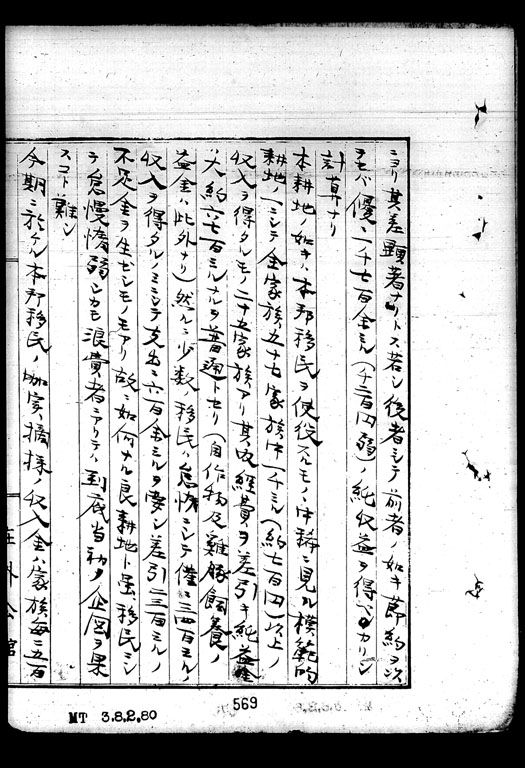 ニヨリ其差顕著ナリトス若シ後者ニシテ前者ノ如キ節約ヲ以
テセバ優ニ一千七百余ミル(千二百円弱)ノ純収益ヲ得ベカリシ
計算ナリ
本耕地ノ如キハ本邦移民ヲ使役スルモノヽ中稀ニ見ル模範的
耕地ノ一ニシテ全家族五十七家族中一千ミル(約七百円)以上ノ
収入ヲ得タルモノ二十五家族アリ其内経費ヲ差引キ純益金
ハ大約六七百ミルナルヲ普通トセリ(自作物及雞豚飼養ノ
益金ハ此外ナリ)然ルニ少数ノ移民ハ怠惰ニシテ僅ニ三四百ミルノ
収入ヲ得タルノミニシテ支出ニ六百余ミルヲ要シ差引二三百ミルノ
不足金ヲ生ゼシモノモアリ故ニ如何ナル良耕地ト雖移民ニシ
テ怠慢惰弱シカモ浪費者ニアリテハ到底当初ノ企図ヲ果
スコト難シ
今期ニ於ケル本邦移民ノ珈琲摘採ノ収入金ハ家族毎ニ五百
在外公館
569
MT 3.8.2.80